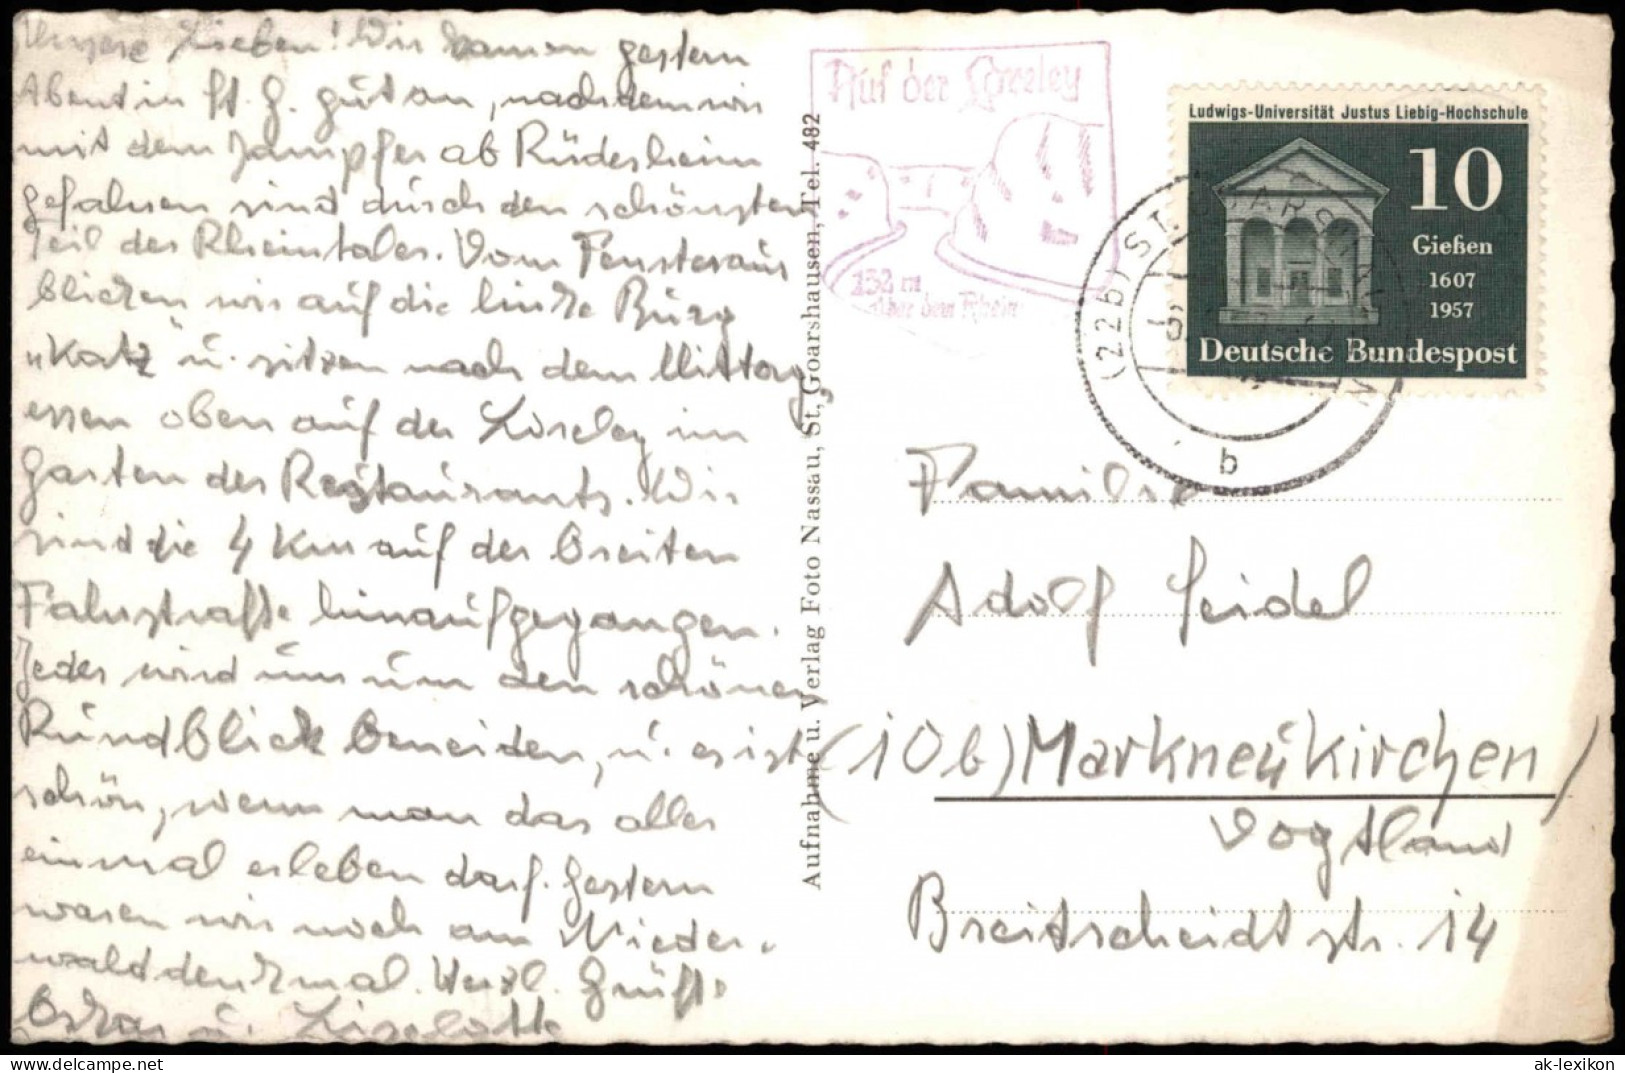 Unsere Lieben! Wir kamen gestern
Abend in St. G. gut an, nachdem wir
mit dem Dampfer ab Rüdesheim
gefahren sind durch den schönsten
Teil des Rheintales. Vom Fenster aus
blicken wir auf die linke Burg
"Katz" u. sitzen nach dem Mittag-
essen oben auf der Loreley im
Garten des Restaurants. Wir
sind die 4 Km auf der breiten
Fahrstraße hinaufgegangen.
Jeder wird uns um den schönen
Rundblick beneiden, u. es ist
schön, wenn man das alles
einmal erleben darf. Gestern
waren wir noch am Nieder-
walddenkmal. Herzl. Grüße
Oskar u. Liselotte
Aufnahme u. Verlag Foto Nassau, St. Goarshausen, Tel. 482
Auf der Loreley
132 m
über dem Rhein
Ludwigs-Universität Justus Liebig-Hochschule
10
Gießen
1607
1957
Deutsche Bundespost
(22b) ST. GOARSHAUSEN
b
Familie
Adolf Seidel
(10b) Markneukirchen/
Vogtland
Breitscheidtstr. 14
ak-lexikon